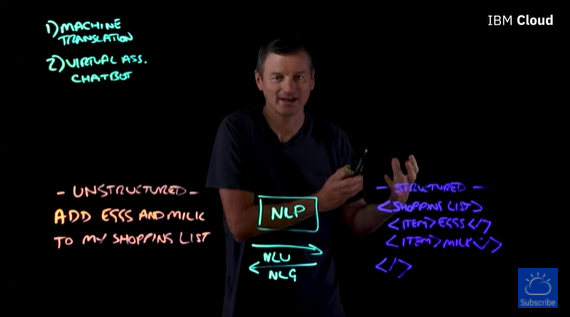 IBM Cloud
1) MACHINE
TRANSLATION
2) VIRTUAL ASS.
CHATBOT
- UNSTRUCTURED -
ADD EGGS AND MILK
TO MY SHOPPING LIST
NLP
NLU
NLG
- STRUCTURED -
<SHOPPING LIST>
<ITEM> EGGS </>
<ITEM> MILK </>
</>
Subscribe